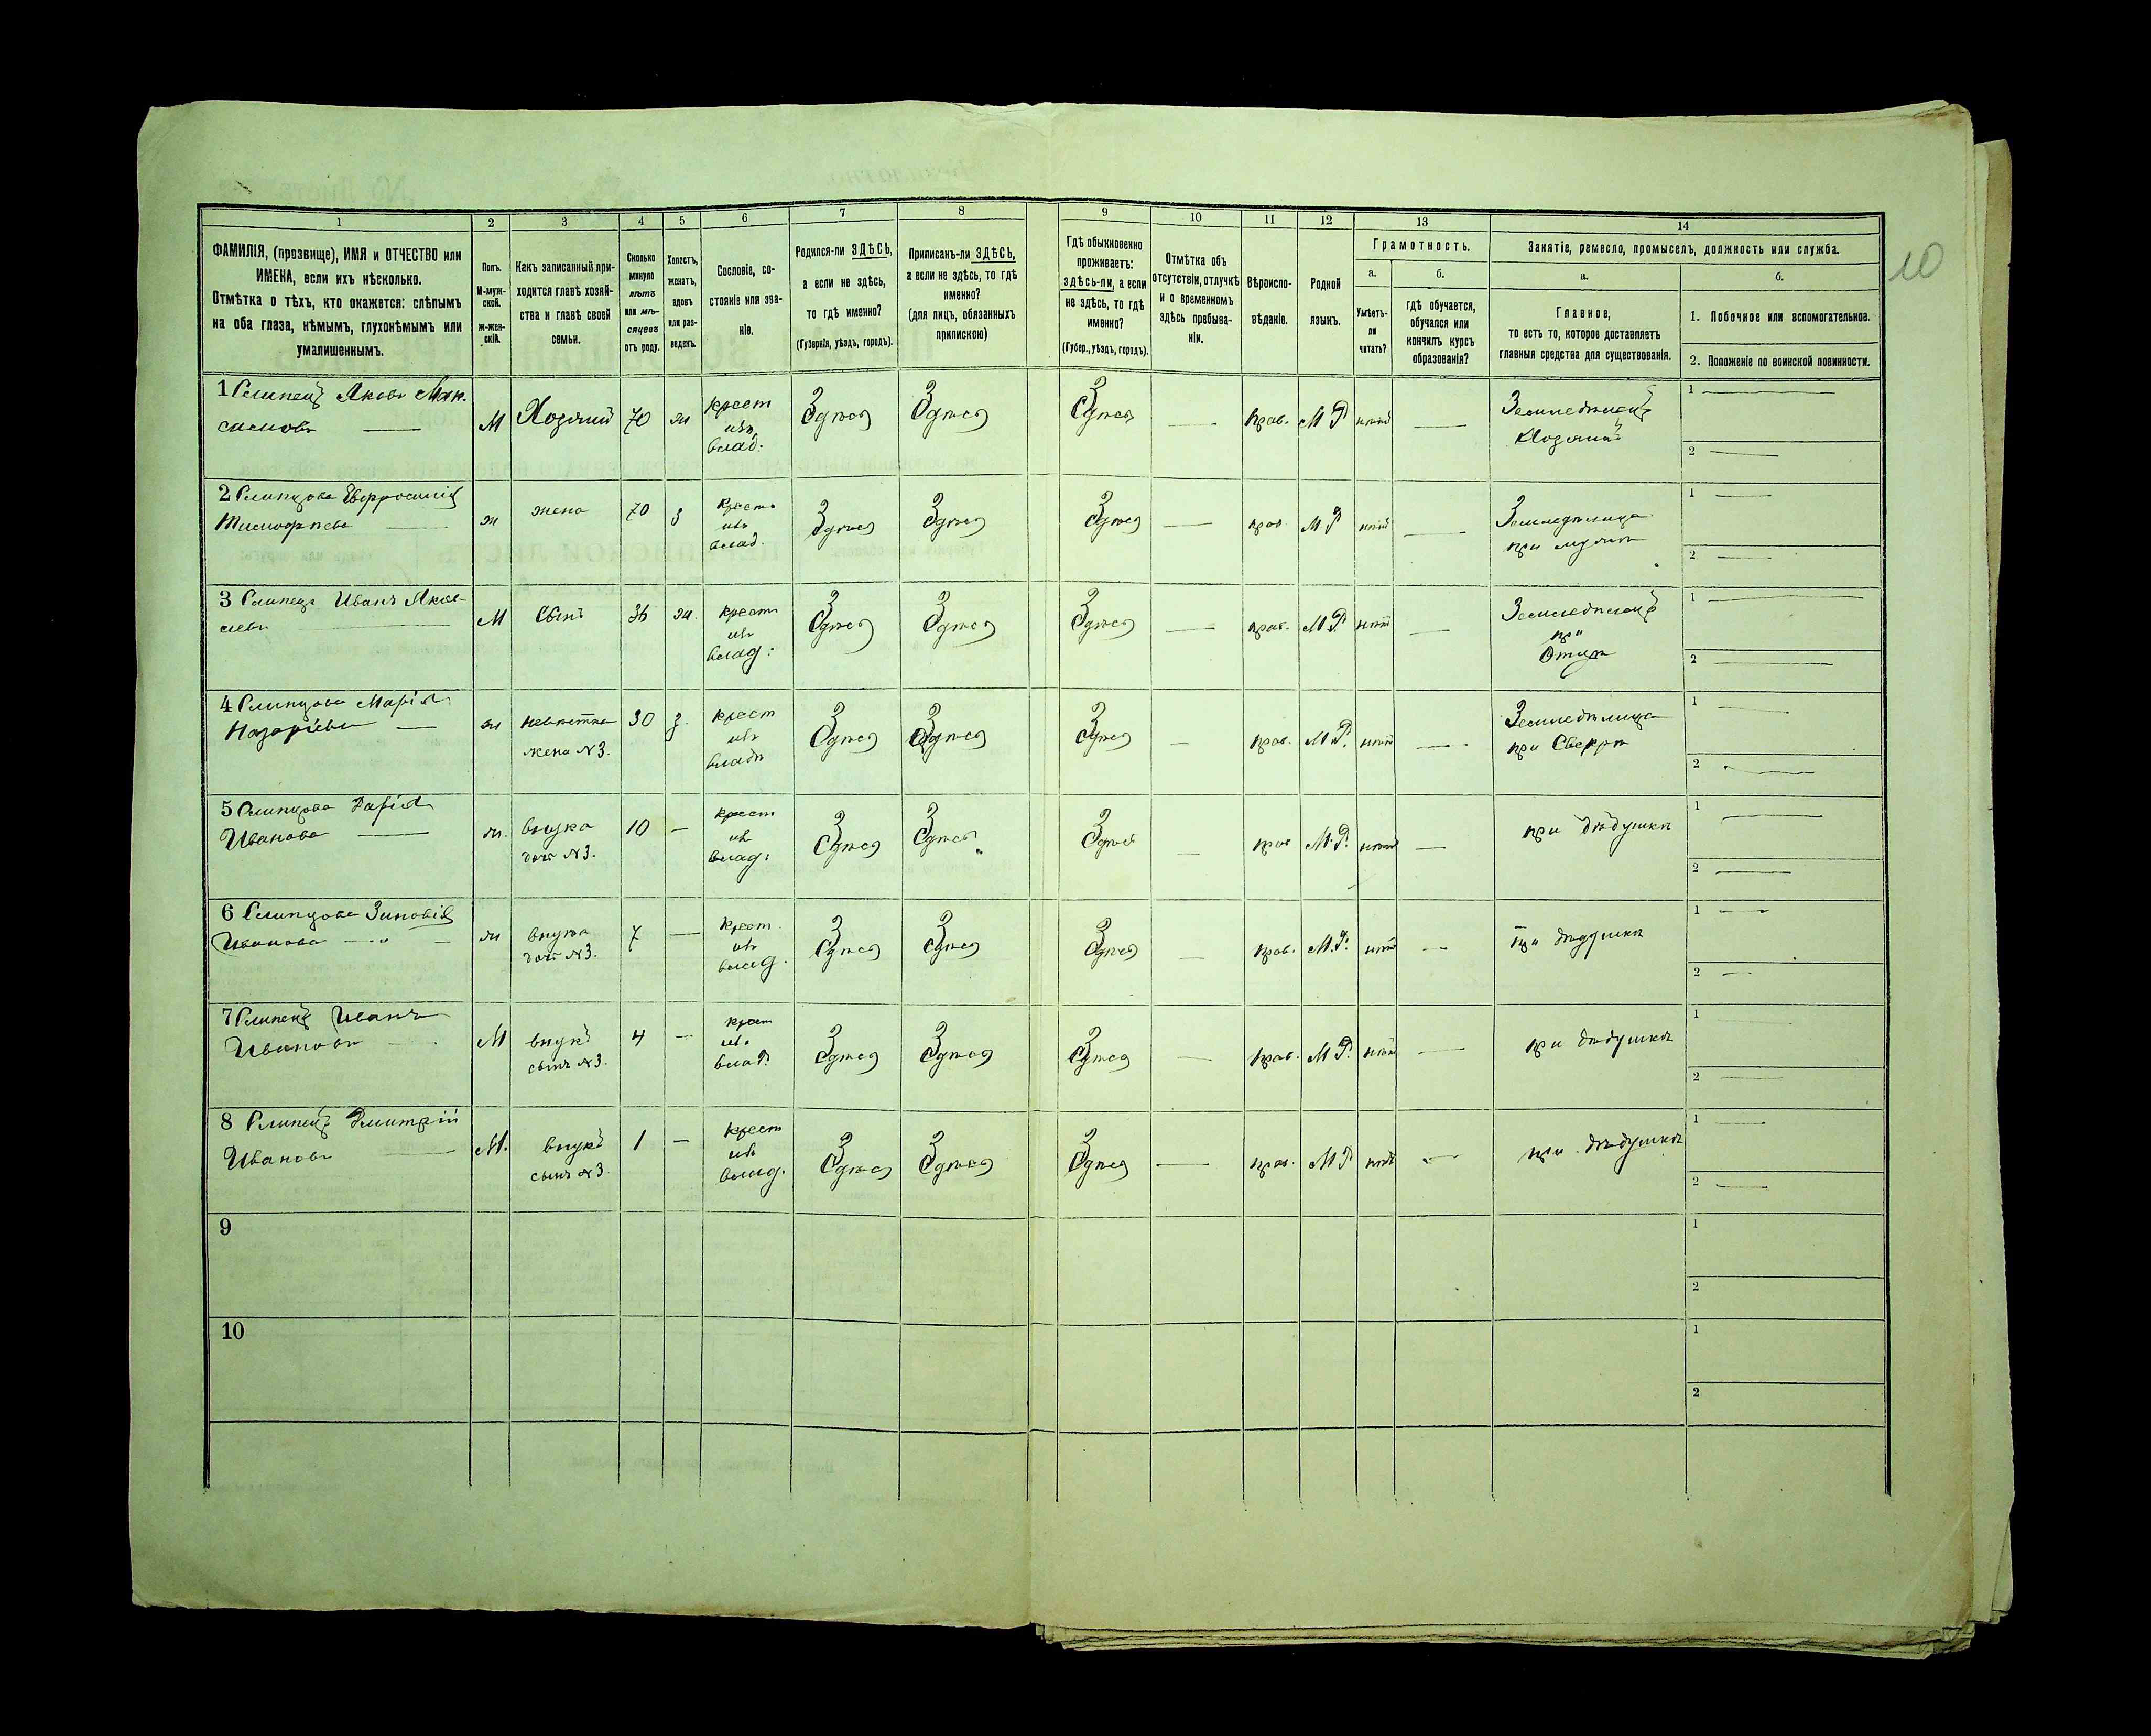 10
1
2
3
4
5
6
7
8
9
10
11
12
13
14
ФАМИЛІЯ, (прозвище), ИМЯ и ОТЧЕСТВО или
ИМЕНА, если ихъ нѣсколько.
Отмѣтка о тѣхъ, кто окажется: слѣпымъ
на оба глаза, нѣмымъ, глухонѣмымъ или
умалишеннымъ.
Полъ.
М-муж-
ской.
ж-жен-
скій.
Какъ записанный при-
ходится главѣ хозяй-
ства и главѣ своей
семьи.
Сколько
минуло
лѣтъ
или мѣ-
сяцевъ
отъ роду.
Холостъ,
женатъ,
вдовъ
или раз-
веденъ.
Сословіе, со-
стояніе или зва-
ніе.
Родился-ли ЗДѢСЬ,
а если не здѣсь,
то гдѣ именно?
(Губернія, уѣздъ, городъ).
Приписанъ-ли ЗДѢСЬ,
а если не здѣсь, то гдѣ
именно?
(для лицъ, обязанныхъ
припискою)
Гдѣ обыкновенно
проживаетъ:
здѣсь-ли, а если
не здѣсь, то гдѣ
именно?
(Губер., уѣздъ, городъ).
Отмѣтка объ
отсутствіи, отлучкѣ
и о временномъ
здѣсь пребыва-
ніи.
Вѣроиспо-
вѣданіе.
Родной
языкъ.
Грамотность.
а.
Умѣетъ-
ли
читать?
б.
гдѣ обучается,
обучался или
кончилъ курсъ
образованія?
Занятіе, ремесло, промыселъ, должность или служба.
а.
Главное,
то есть то, которое доставляетъ
главныя средства для существованія.
б.
1. Побочное или вспомогательное.
2. Положеніе по воинской повинности.
1 Слипецъ Яковъ Мак-
симовъ —
М
Хозяинъ
70
ж
крест
изъ
влад.
Здѣся
Здѣся
Здѣся
—
прав.
М Р
нѣтъ
—
Земледѣлецъ
Хозяинъ
1 —
2 —
2 Слипцова Евфросинія
Тимофѣева —
ж
жена
70
з
крест.
изъ
влад.
Здѣся
Здѣся
Здѣся
—
прав.
М Р
нѣтъ
—
Земледѣлица
при мужѣ
1 —
2 —
3 Слипецъ Иванъ Яков-
левъ —
М
Сынъ
36
ж.
крест
изъ
влад:
Здѣся
Здѣся
Здѣся
—
прав.
М Р.
нѣтъ
—
Земледѣлецъ
при
Отцѣ
1 —
2 —
4 Слипцова Марія
Назаріева —
ж
невѣстка
жена №3.
30
з.
крест
изъ
владѣ
Здѣся
Здѣся
Здѣся
—
прав.
М.Р.
нѣтъ
—
Земледѣлица
при Свекрѣ
1 —
2 —
5 Слипцова Дарія
Иванова —
ж.
внука
дочь №3.
10
—
крест
изъ
влад:
Здѣся
Здѣся
Здѣся
—
прав
М.Р.
нѣтъ
—
при дѣдушкѣ
1 —
2 —
6 Слипцова Зиновія
Иванова —
ж
внука
дочь №3.
7
—
крест.
изъ
влад.
Здѣся
Здѣся
Здѣся
—
прав.
М.Р.
нѣтъ
—
при дѣдушкѣ
1 —
2 —
7 Слипецъ Иванъ
Ивановъ —
М
внукъ
сынъ №3.
4
—
крест
изъ
влад.
Здѣся
Здѣся
Здѣся
—
прав.
М Р.
нѣтъ
—
при дѣдушкѣ
1 —
2 —
8 Слипецъ Дмитрій
Ивановъ —
М.
внукъ
сынъ №3.
1
—
крест
изъ
влад.
Здѣся
Здѣся
Здѣся
—
прав.
М Р
нѣтъ
—
при дѣдушкѣ
1 —
2 —
9
1
2
10
1
2